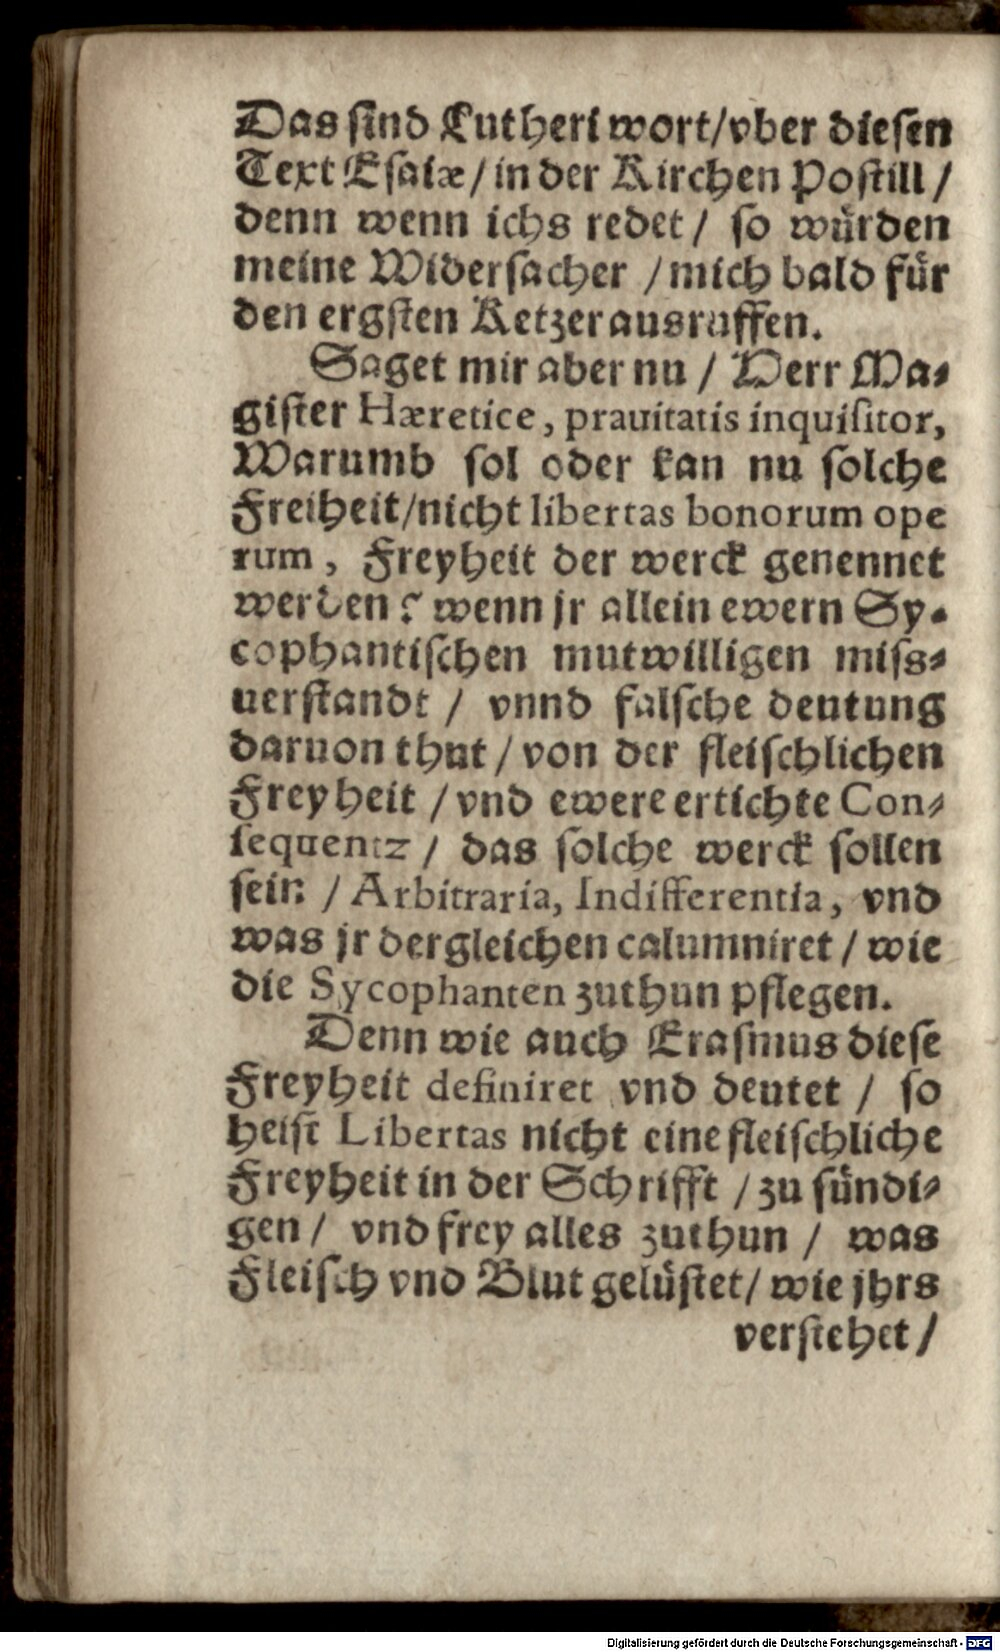 Das sind Lutheri wort/vber diesen
Text Esaiæ/in der Kirchen Postill/
denn wenn ichs redet/ so würden
meine Widersacher /mich bald für
den ergsten Ketzer ausruffen.
Saget mir aber nu / Herr Ma-
gister Hæretice, prauitatis inquisitor,
Warumb sol oder kan nu solche
Freiheit/nicht libertas bonorum ope
rum, Freyheit der werck genennet
werden? wenn jr allein ewern Sy-
cophantischen mutwilligen miss-
uerstandt / vnnd falsche deutung
daruon thut/von der fleischlichen
Freyheit /vnd ewere ertichte Con-
sequentz / das solche werck sollen
sein / Arbitraria, Indifferentia, vnd
was jr dergleichen calumniret/wie
die Sycophanten zuthun pflegen.
Denn wie auch Erasmus diese
Freyheit definiret vnd deutet / so
heist Libertas nicht eine fleischliche
Freyheit in der Schrifft /zu sündi-
gen/ vnd frey alles zuthun / was
Fleisch vnd Blut gelüstet/wie jhrs
verstehet/
Digitalisierung gefördert durch die Deutsche Forschungsgemeinschaft - DFG